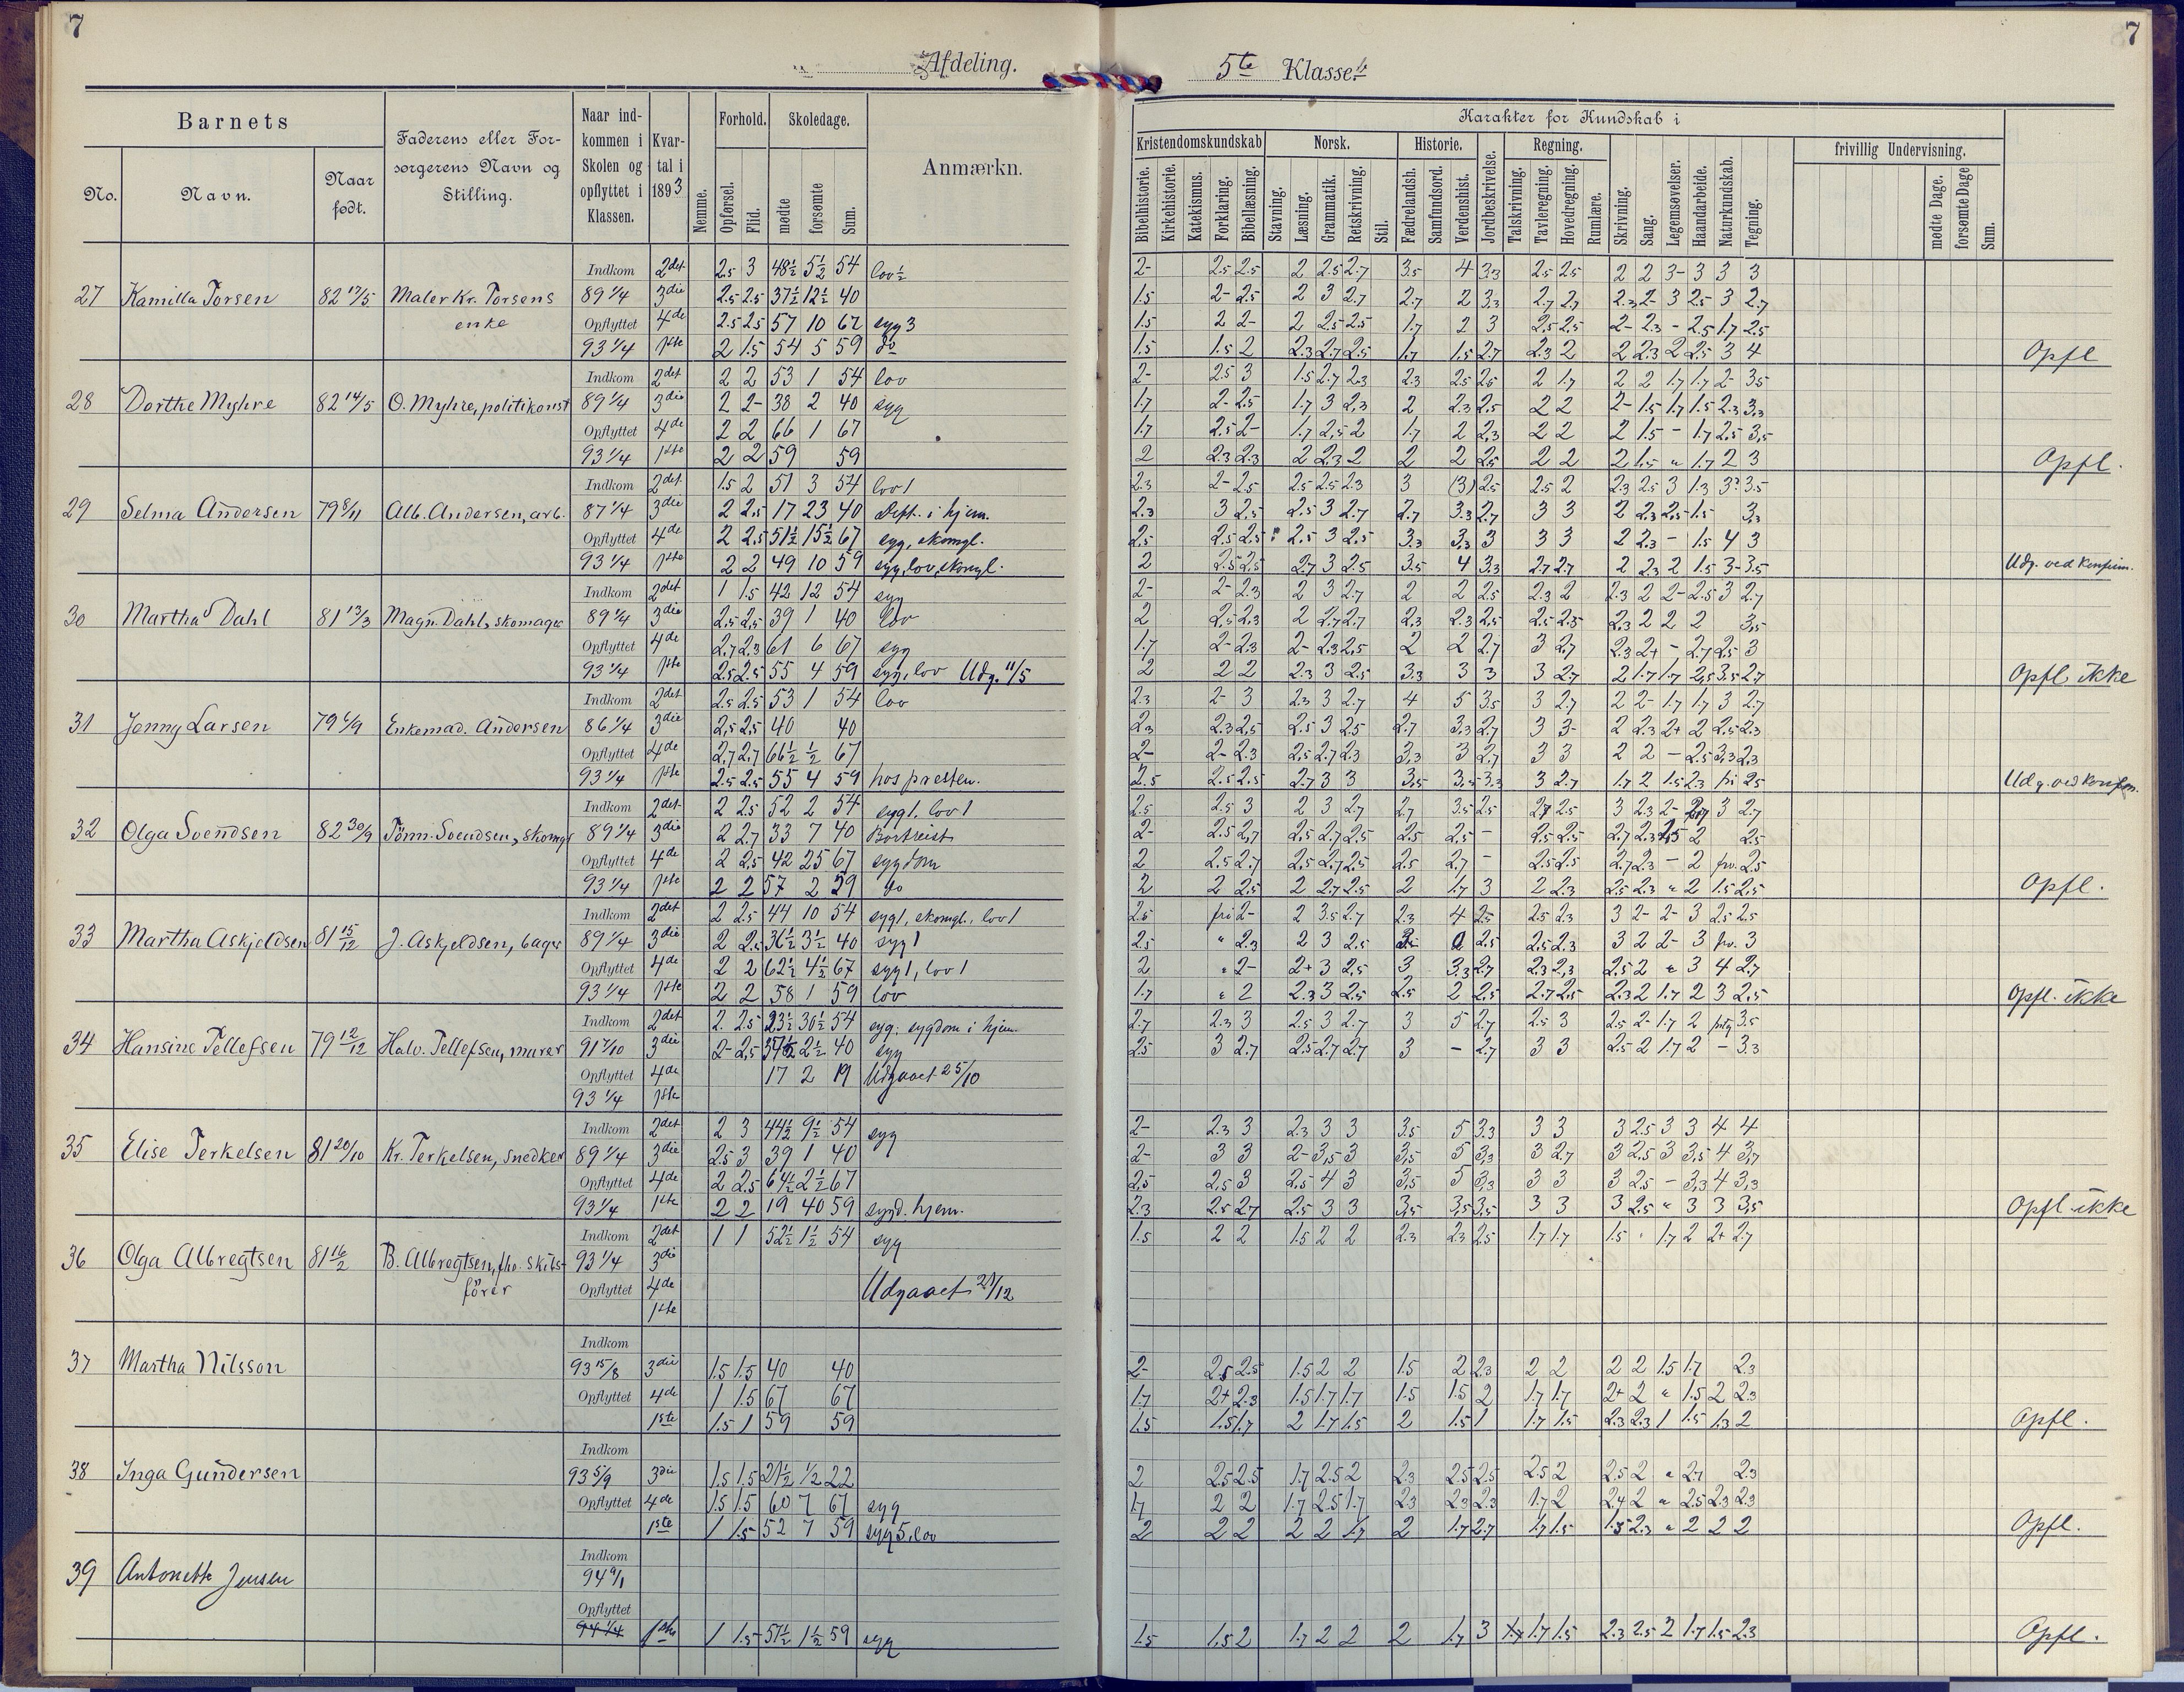 7
Afdeling.
5te Klasse.
7
Barnets
No.
Navn.
Naar født.
Faderens eller Forsørgerens Navn og Stilling.
Naar indkommen i Skolen og opflyttet i Klassen.
Kvartal i 1893
Nemme.
Forhold.
Opførsel.
Flid.
Skoledage.
mødte
forsømte
Sum.
Anmærkn.
Karakter for Kundskab i
Kristendomskundskab
Bibelhistorie.
Kirkehistorie.
Katekismus.
Forklaring.
Bibellæsning.
Norsk.
Stavning.
Læsning.
Grammatik.
Retskrivning.
Stil.
Historie.
Fædrelandsh.
Samfundsord.
Verdenshist.
Jordbeskrivelse.
Regning.
Talskrivning.
Tavleregning.
Hovedregning.
Rumlære.
Skrivning.
Sang.
Legemsøvelser.
Haandarbeide.
Naturkundskab.
Tegning.
frivillig Undervisning.
mødte Dage.
forsømte Dage
Sum.
Indkom 2det 2.5 3 48½ 5½ 54 lov ½ 2- 2.5 2.5 2 2.5 2.7 3.5 4 3.3 2.5 2.5 2 2 3- 3 3 3
27 Kamilla Torsen 82 17/5 Maler Kr. Torsens 89 1/4 3die 2.5 2.5 37½ 12½ 40 1.5 2- 2.5 2 3 2.7 2.7 2 3.3 2.7 2.7 2.3 2- 3 2.5 3 2.7
enke Opflyttet 4de 2.5 2.5 57 10 67 syg 3 1.5 2 2- 2 2.5 2.5 1.7 2 3 2.5 2.5 2- 2.3 - 2.5 1.7 2.5
93 1/4 1ste 2 1.5 54 5 59 do 1.5 1.5 2 2.3 2.7 2.5 1.7 1.5 2.7 2.3 2 2 2.3 2 2.5 3 4 Opfl
Indkom 2det 2 2 53 1 54 lov 2- 2.5 3 1.5 2.7 2.3 2.3 2.5 2.5 2 1.7 2 2 1.7 1.7 2- 3.5
28 Dorthe Myhre 82 14/5 O. Myhre, politikonst 89 1/4 3die 2 2- 38 2 40 syg 1.7 2- 2.5 1.7 3 2.3 2 2.3 2.5 2 2 2- 1.5 1.7 1.5 2.3 3.3
Opflyttet 4de 2 2 66 1 67 1.7 2.5 2- 1.7 2.5 2 1.7 2 2.3 2 2 2 1.5 - 1.7 2.5 3.5
93 1/4 1ste 2 2 59 59 2 2.3 2.3 2 2.3 2 2 2 2.5 2 2 2 1.5 " 1.7 2 3 Opfl.
Indkom 2det 1.5 2 51 3 54 lov 1 2.3 2- 2.5 2.5 2.5 2.3 3 (3) 2.5 2.5 2 2.3 2.5 3 1.3 3? 3.5
29 Selma Andersen 79 8/11 Alb. Andersen, arb. 87 1/4 3die 2 2.5 17 23 40 Deft. i hjem. 2.3 3 2.5 2.5 3 2.7 2.7 3.3 2.7 3 3 2 2.3 2.5 1.5 3.3
Opflyttet 4de 2 2.5 51½ 15½ 67 syg, skomgl. 2.5 2.5 2.5 2.5 3 2.5 3.3 3.3 3 3 3 2 2.3 - 1.5 4 3
93 1/4 1ste 2 2 49 10 59 syg, lov, skomgl. 2 2.5 2.5 2.7 3 2.5 3.5 4 3.3 2.7 2.7 2 2.3 2 1.5 3- 3.5 Udg. ved konfirm.
Indkom 2det 1 1.5 42 12 54 syg 2- 2- 2.3 2 3 2.7 2 2 2.5 2.3 2 2.3 2 2- 2.5 3 2.7
30 Martha Dahl 81 13/3 Magn. Dahl, skomager 89 1/4 3die 2.5 2.5 39 1 40 lov 2 2.5 2.3 2 2.7 2.7 2.3 2.3 2.5 2.5 2.5 2.3 2 2 2 3.5
Opflyttet 4de 2.7 2.3 61 6 67 syg 1.7 2- 2.3 2- 2.3 2.5 2 2 2.7 3 2.7 2.3 2+ - 2.7 2.5 3
93 1/4 1ste 2.5 2.5 55 4 59 syg, lov Udg. 11/5 2 2 2 2.3 3 2.5 3.3 3 3 3 2.7 2 1.7 1.7 2.5 3.5 2.7 Opfl ikke
Indkom 2det 2.5 2.5 53 1 54 lov 2.3 2- 3 2.3 3 2.7 4 5 3.5 3 2.7 2 2- 1.7 1.7 3 2.7
31 Jenny Larsen 79 4/9 Enkemad. Andersen 86 1/4 3die 2.5 2.5 40 40 2.3 2.3 2.5 2.5 3 2.5 2.7 3.3 2.7 3 3- 2 2.3 2+ 2 2.5 2.3
Opflyttet 4de 2.7 2.7 66½ ½ 67 2- 2- 2.3 2.5 2.7 2.3 3.3 3 2.7 3 3 2 2 - 2.5 3.3 2.3
93 1/4 1ste 2.5 2.5 55 4 59 hos presten. 2.5 2.5 2.5 2.7 3 3 3.5 3.5 3.3 3 2.7 1.7 2 1.5 2.3 fri 2.5 Udg. ved konfrm.
Indkom 2det 2 2.5 52 2 54 syg 1. lov 1 2.5 2.5 3 2 3 2.7 2.7 3.5 2.5 2.7 2.5 3 2.3 2- 2.7 3 2.7
32 Olga Svendsen 82 30/9 Tönn. Svendsen, skomgr 89 1/4 3die 2 2.7 33 7 40 Bortreist 2- 2.5 2.7 2.5 2.7 2.5 2.5 2.5 - 2.5 2.5 2.7 2.3 2.5 2 2.5
Opflyttet 4de 2 2.5 42 25 67 sygdom 2 2.5 2.7 2.5 2.7 2.5 2.5 2.7 - 2.5 2.5 2.7 2.3 - 2 frv. 2.5
93 1/4 1ste 2 2 57 2 59 do 2 2 2.5 2 2.7 2.5 2 1.7 3 2 2.3 2.5 2.3 " 2 1.5 2.5 Opfl.
Indkom 2det 2 2.5 44 10 54 syg 1, skomgl., lov 1 2.5 fri 2- 2 3.5 2.7 2.3 4 2.5 2.5 2.3 3 2- 2- 3 2.5 2.5
33 Martha Askjeldsen 81 15/12 J. Askjeldsen, bager 89 1/4 3die 2 2.5 36½ 3½ 40 syg 1 2.5 " 2.3 2 3 2.5 2.5 2.5 2.3 3 2 2- 3 frv. 3
Opflyttet 4de 2 2 62½ 4½ 67 syg 1, lov 1 2 " 2- 2+ 3 2.5 3 3.3 2.7 2.3 2.3 2.5 2 " 3 4 2.7
93 1/4 1ste 2 2 58 1 59 lov 1.7 " 2 2.3 3 2.5 2.5 2 2.5 2.7 2.5 2.3 2 1.7 2 3 2.5 Opfl. ikke
Indkom 2det 2. 2.5 23½ 30½ 54 syg. sygdom i hjem. 2.7 2.3 3 2.5 3 2.7 3 5 2.7 2.5 3 2.5 2- 1.7 2 3.5
34 Hansine Tellefsen 79 12/12 Halv. Tellefsen, murer 91 1/10 3die 2- 2.5 37½ 2½ 40 syg 2.5 3 2.7 2.5 2.7 2.7 3 - 2.7 3 3 2.5 2 1.7 2 - 3.3
Opflyttet 4de 17 2 19 Udgaaet 25/10
93 1/4 1ste
Indkom 2det 2 3 44½ 9½ 54 syg 2- 2.3 3 2.3 3 3 3.5 5 3.3 3 3 3 2.5 3 3 4 4
35 Elise Terkelsen 81 20/10 Kr. Terkelsen, snedker 89 1/4 3die 2.5 3 39 1 40 2- 3 3 2- 3.5 3 3.5 5 3.3 3 2.7 3 2.5 3 3.5 4 3.7
Opflyttet 4de 2 2.5 64½ 2½ 67 2.5 2.5 3 2.5 4 3 3.5 5 3.3 3 3 3 2.5 - 3.3 4 3.3
93 1/4 1ste 2 2 19 40 59 sygd. hjem. 2.3 2.5 2.7 2.5 3 3 3.5 3.5 3.5 3 3 3 2.5 " 3 3 3.5 Opfl ikke
Indkom 2det 1 1 52½ 1½ 54 syg 1.5 2 2 1.5 2 2 2.3 2.3 2.5 1.7 1.7 1.5 " 1.7 2 2+ 2.7
36 Olga Albregtsen 81 16/2 B. Albregtsen, fhv. skibs- 93 1/4 3die
förer Opflyttet 4de Udgaaet 21/12
1ste
Indkom
37 Martha Nilsson 93 15/8 3die 1.5 1.5 40 40 2- 2.5 2.5 1.5 2 2 1.5 2 2.3 2 2 2 2 1.5 1.7 2.3
Opflyttet 4de 1 1.5 67 67 1.7 2+ 2.3 1.5 1.7 1.7 1.5 1.5 2 1.7 1.7 2+ 2 " 1.5 2 2.3
1ste 1.5 1 59 59 1.5 1.5 1.7 2 1.7 1.5 2 1.5 1 1.7 1.5 2.3 2.3 1 1.5 1.3 2 Opfl.
Indkom
38 Inga Gundersen 93 5/9 3die 1.5 1.5 21½ ½ 22 2 2.5 2.5 1.7 2.5 2 2.3 2.5 2.5 2.5 2 2.5 2 " 2.7 2.3
Opflyttet 4de 1.5 1.5 60 7 67 syg 1.7 2 2 1.7 2.5 1.7 2.3 2.3 2.3 1.7 2 2.4 2 " 2.5 2.3 2.3
1ste 1 1.5 52 7 59 syg 5, lov 2 2 2 2 2 1.7 2 1.7 2.7 1.7 1.5 1.5 2.3 " 2 2 2 Opfl.
Indkom
39 Antonette Jensen 94 9/1
Opflyttet
94 1/4 1ste 1 1.5 57½ 1½ 59 syg 1.5 1.5 2 1.7 2 2 2 1.7 3 1.7 1.7 1.5 2.3 2.5 2 1.7 1.5 2.3 Opfl.